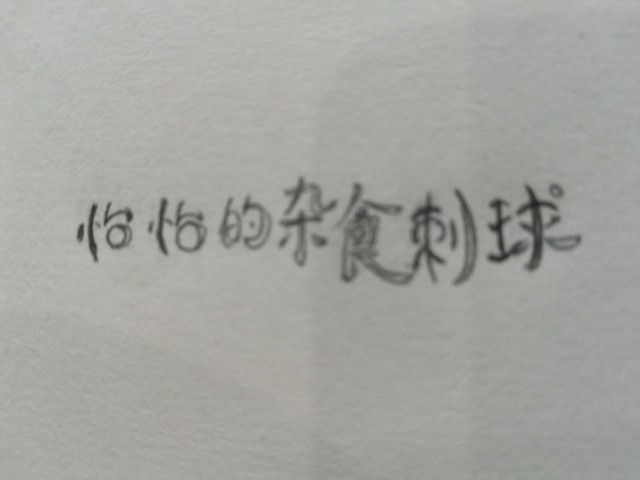 怡怡的杂食刺球